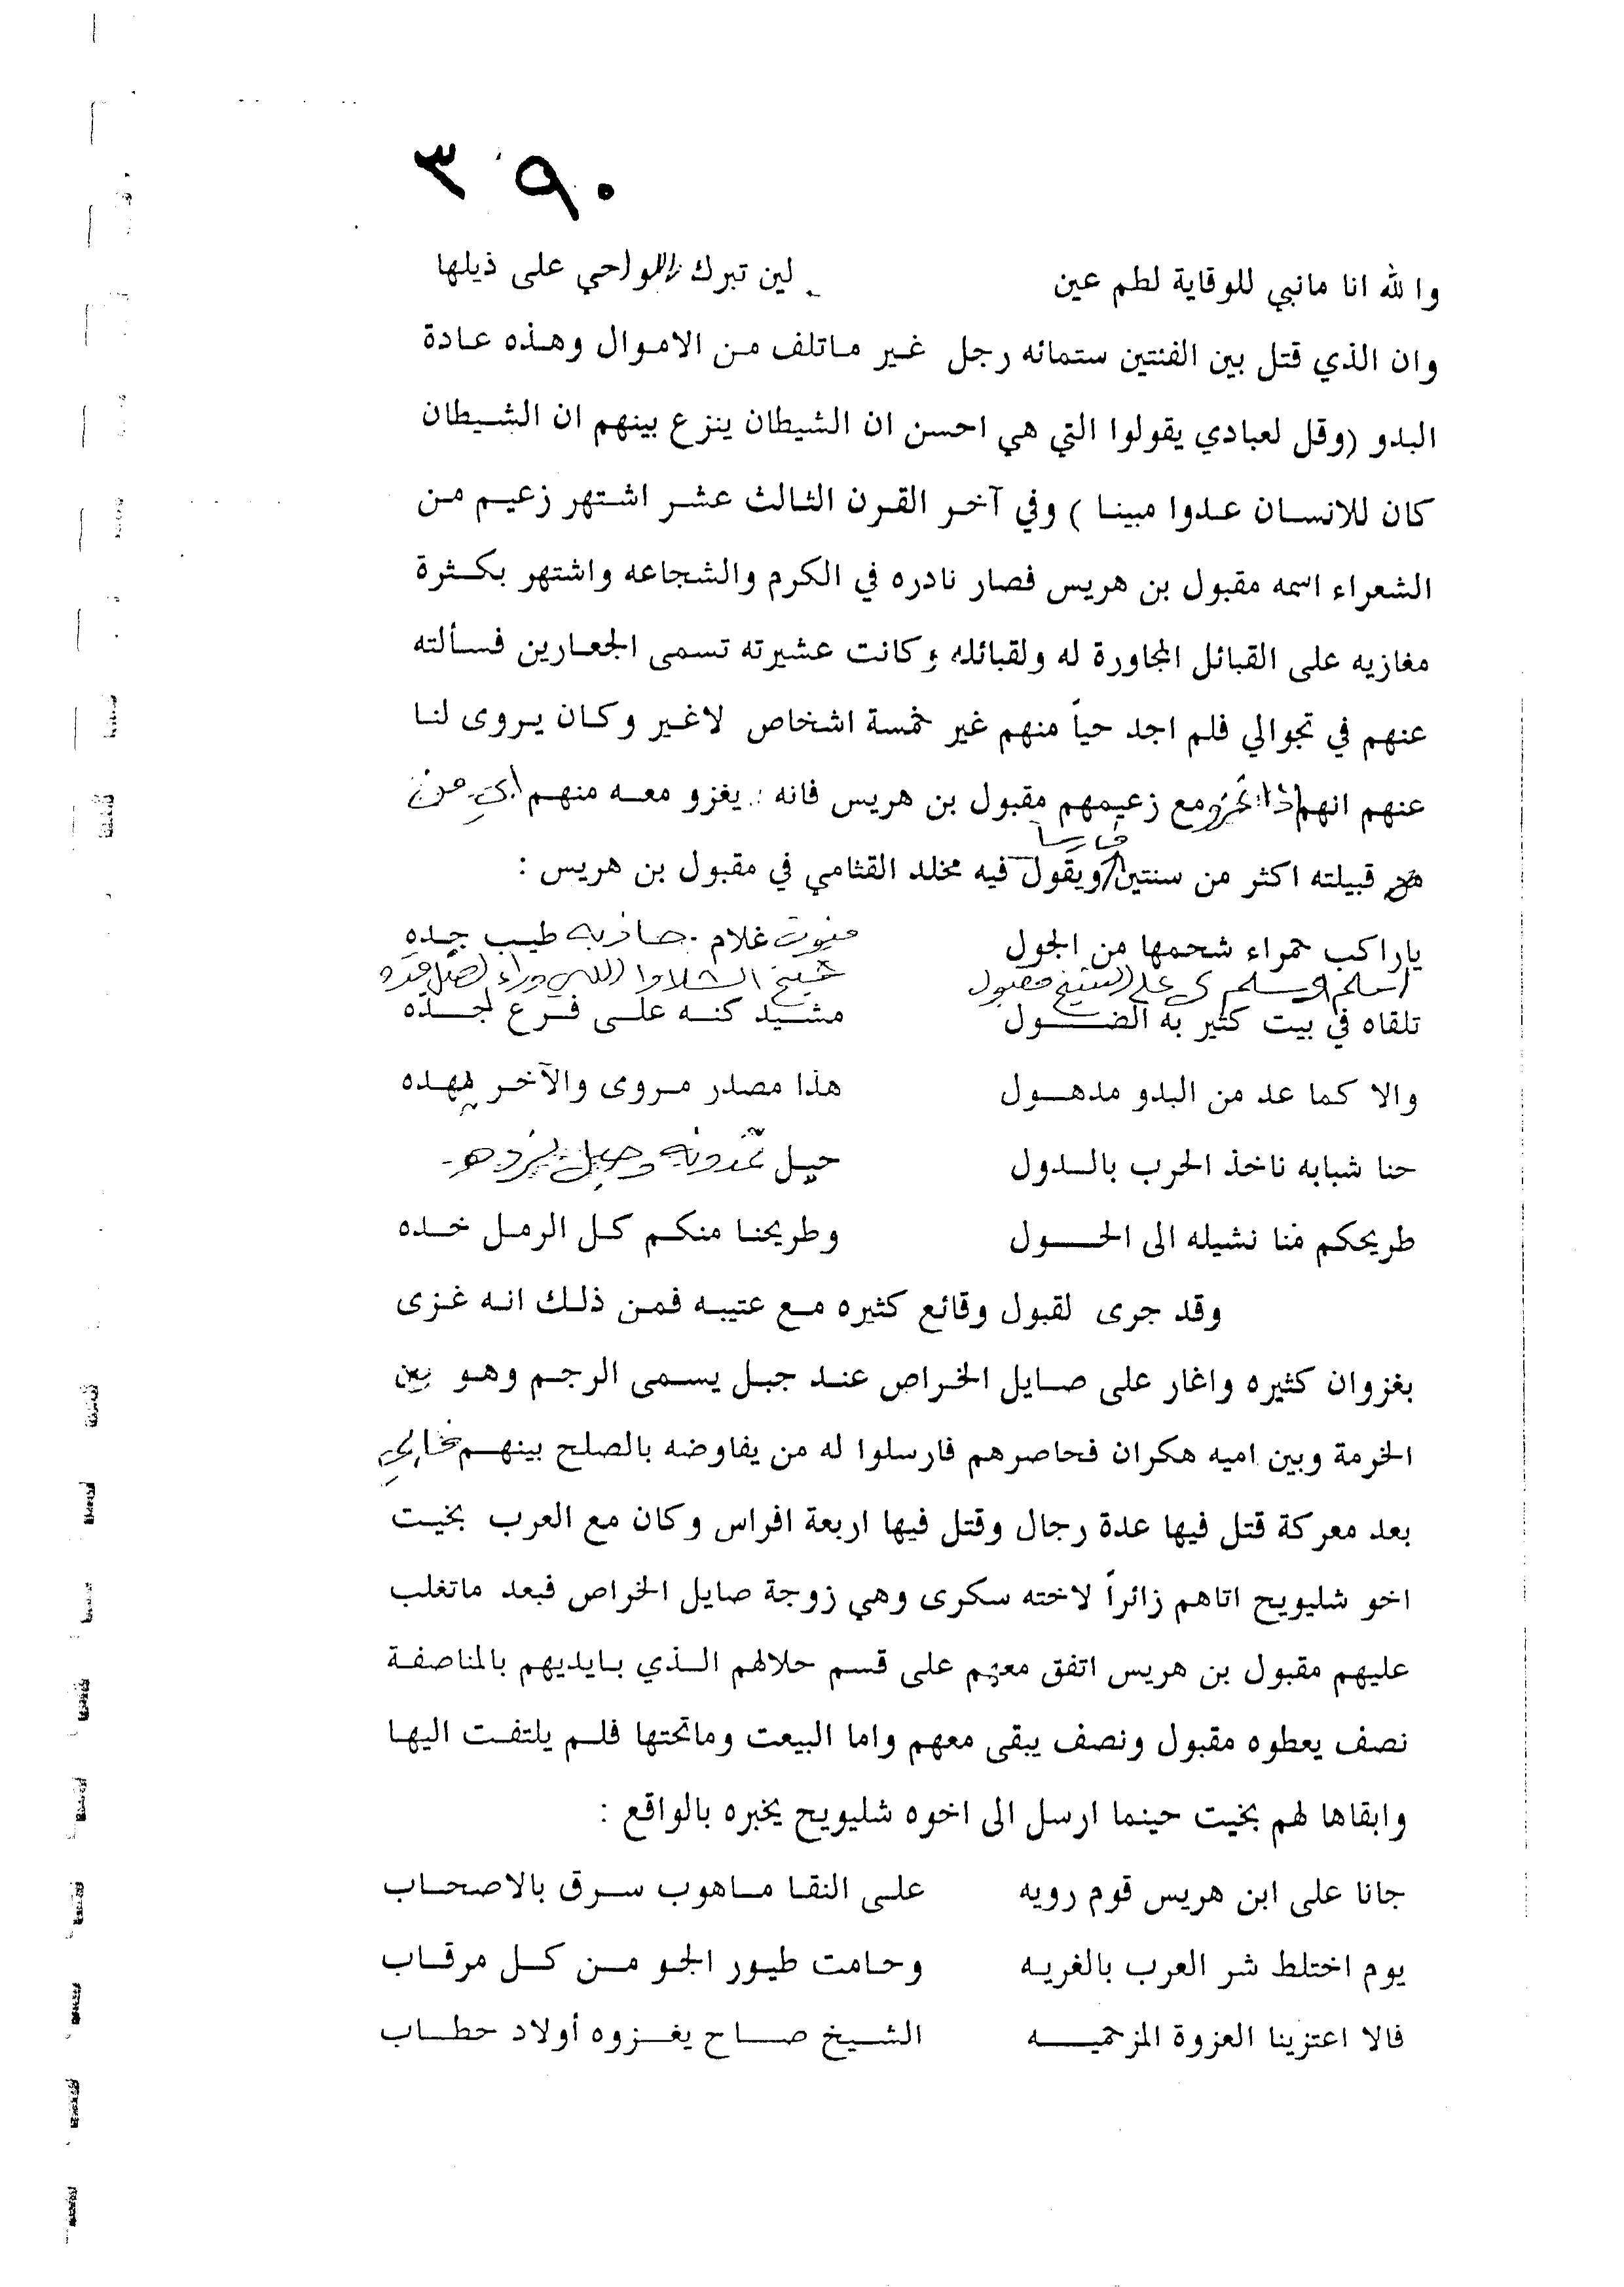 ٣٩٠
والله انا مانبي للوقاية لطم عين لين تبرك اللواحي على ذيلها
وان الذي قتل بين الفئتين ستمائه رجل غير ماتلف من الاموال وهذه عادة
البدو (وقل لعبادي يقولوا التي هي احسن ان الشيطان ينزع بينهم ان الشيطان
كان للانسان عدوا مبينا ) وفي آخر القرن الثالث عشر اشتهر زعيم من
الشعراء اسمه مقبول بن هريس فصار نادره في الكرم والشجاعه واشتهر بكثرة
مغازيه على القبائل المجاورة له ولقبائله وكانت عشيرته تسمى الجعارين فسألته
عنهم في تجوالي فلم اجد حياً منهم غير خمسة اشخاص لاغير وكان يروى لنا
عنهم انهم إذا مع زعيمهم مقبول بن هريس فانه يغزو معه منهم اي من
قبيلته اكثر من سنتين فارسا ويقول فيه مخلد القثامي في مقبول بن هريس :
ياراكب حمراء شحمها من الجول غلام طيب جده
على الشيخ مقبول شيخ اللي وراء
تلقاه في بيت كثير به الضول مشيد كنه على فرع لجده
والا كما عد من البدو مدهول هذا مصدر مروى والآخر يهده
حنا شبابه ناخذ الحرب بالدول حيل وحيل
طريحكم منا نشيله الى الحول وطريحنا منكم كل الرمل خده
وقد جرى لقبول وقائع كثيره مع عتيبه فمن ذلك انه غزى
بغزوان كثيره واغار على صايل الخراص عند جبل يسمى الرجم وهو بين
الخرمة وبين اميه هكران فحاصرهم فارسلوا له من يفاوضه بالصلح بينهم
بعد معركة قتل فيها عدة رجال وقتل فيها اربعة افراس وكان مع العرب بخيت
اخو شليويح اتاهم زائراً لاخته سكرى وهي زوجة صايل الخراص فبعد ماتغلب
عليهم مقبول بن هريس اتفق معهم على قسم حلالهم الذي بايديهم بالمناصفة
نصف يعطوه مقبول ونصف يبقى معهم واما البيعت وماتحتها فلم يلتفت اليها
وابقاها لهم بخيت حينما ارسل الى اخوه شليويح يخبره بالواقع :
جانا على ابن هريس قوم رويه على النقا ماهوب سرق بالاصحاب
يوم اختلط شر العرب بالغريه وحامت طيور الجو من كل مرقاب
فالا اعتزينا العزوة المزحميه الشيخ صاح يغزوه أولاد حطاب